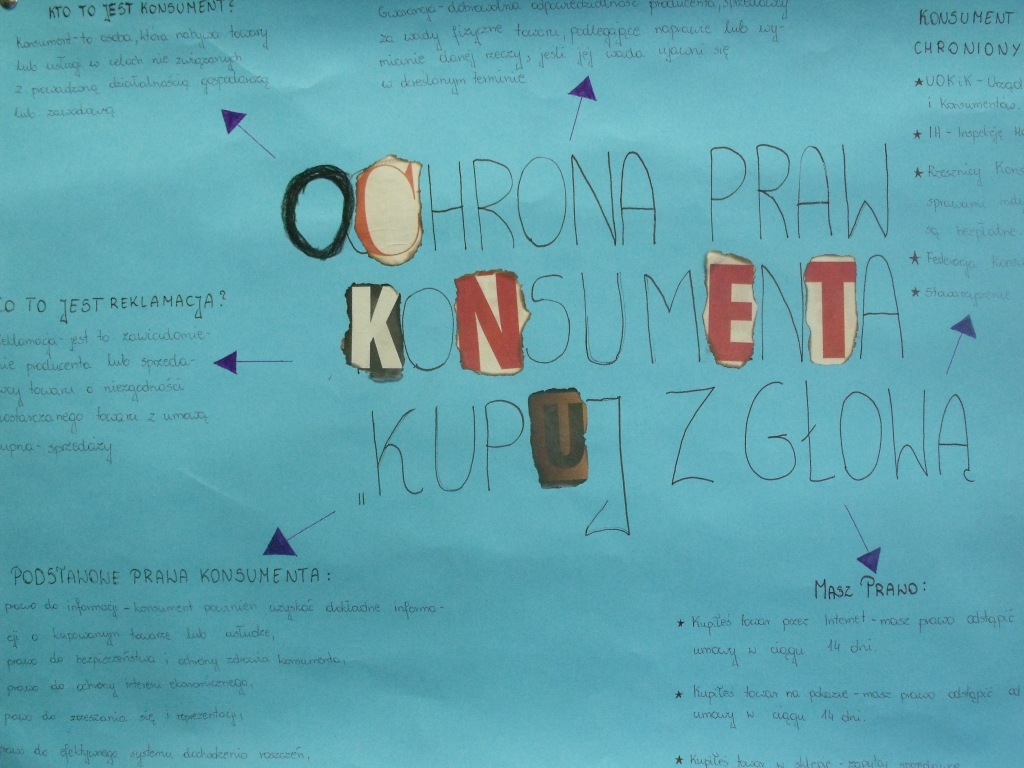 KTO TO JEST KONSUMENT?
Konsument-to osoba, która nabywa towary
lub usługi w celach nie związanych
z prowadzoną działalnością gospodarczą
lub zawodową
Gwarancja-dobrowolna odpowiedzialność producenta, sprzedawcy
za wady fizyczne towaru, podlegające naprawie lub wy-
mianie danej rzeczy, jeśli jej wada ujawni się
w określonym terminie
KONSUMENT
CHRONIONY
★UOKiK-Urząd
i Konsumentów.
★ IH- Inspekcję
★ Rzecznicy Kons
sprawami
są bezpłatne.
★ Federacja Konsu
★ Stowarzyszenie
OCHRONA PRAW
KONSUMENTA
„KUPUJ Z GŁOWĄ
CO TO JEST REKLAMACJA?
eklamacja-jest to zawiadomie-
nie producenta lub sprzeda-
wcy towaru o niezgodności
ostarczanego towaru z umową
upna-sprzedaży
PODSTAWOWE PRAWA KONSUMENTA:
prawo do informacji-konsument powinien uzyskać dokładne informa-
cji o kupowanym towarze lub usłudze,
prawo do bezpieczeństwa i ochrony zdrowia konsumenta,
prawo do ochrony interesu ekonomicznego,
prawo do zrzeszania się i reprezentacji,
prawo do efektywnego systemu dochodzenia roszczeń,
MASZ PRAWO:
★ Kupiłeś towar przez Internet-masz prawo odstąpić
umowy w ciągu 14 dni.
★ Kupiłeś towar na pokazie-masz prawo odstąpić od
umowy w ciągu 14 dni.
★ Kupiłeś towar w sklepie-zapytaj sprzedawcę